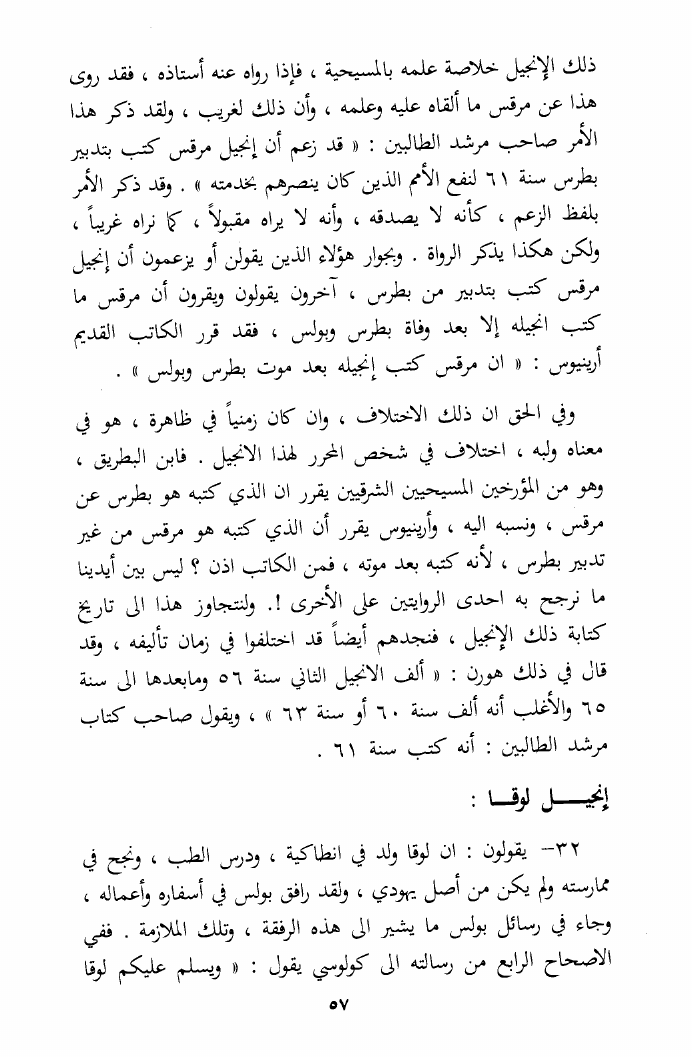 ذلك الإنجيل خلاصة علمه بالمسيحية ، فإذا رواه عنه أستاذه ، فقد روى
هذا عن مرقس ما ألقاه عليه وعلمه ، وأن ذلك لغريب ، ولقد ذكر هذا
الأمر صاحب مرشد الطالبين : « قد زعم أن إنجيل مرقس كتب بتدبير
بطرس سنة ٦١ لنفع الأمم الذين كان ينصرهم بخدمته » . وقد ذكر الأمر
بلفظ الزعم ، كأنه لا يصدقه ، وأنه لا يراه مقبولاً ، كما نراه غريباً ،
ولكن هكذا يذكر الرواة . وبجوار هؤلاء الذين يقولن أو يزعمون أن إنجيل
مرقس كتب بتدبير من بطرس ، آخرون يقولون ويقرون أن مرقس ما
كتب انجيله إلا بعد وفاة بطرس وبولس ، فقد قرر الكاتب القديم
أرينيوس : « ان مرقس كتب إنجيله بعد موت بطرس وبولس » .
وفي الحق ان ذلك الاختلاف ، وان كان زمنياً في ظاهرة ، هو في
معناه ولبه ، اختلاف في شخص المحرر لهذا الانجيل . فابن البطريق ،
وهو من المؤرخين المسيحيين الشرقيين يقرر ان الذي كتبه هو بطرس عن
مرقس ، ونسبه اليه ، وأرينيوس يقرر أن الذي كتبه هو مرقس من غير
تدبير بطرس ، لأنه كتبه بعد موته ، فمن الكاتب اذن ؟ ليس بين أيدينا
ما نرجح به احدى الروايتين على الأخرى !. ولنتجاوز هذا الى تاريخ
كتابة ذلك الإنجيل ، فنجدهم أيضاً قد اختلفوا في زمان تأليفه ، وقد
قال في ذلك هورن : « ألف الانجيل الثاني سنة ٥٦ ومابعدها الى سنة
٦٥ والأغلب أنه ألف سنة ٦٠ أو سنة ٦٣ » ، ويقول صاحب كتاب
مرشد الطالبين : أنه كتب سنة ٦١ .
إنجيـــل لوقـا :
٣٢– يقولون : ان لوقا ولد في انطاكية ، ودرس الطب ، ونجح في
ممارسته ولم يكن من أصل يهودي ، ولقد رافق بولس في أسفاره وأعماله ،
وجاء في رسائل بولس ما يشير الى هذه الرفقة ، وتلك الملازمة . ففي
الاصحاح الرابع من رسالته الى كولوسي يقول : « ويسلم عليكم لوقا
٥٧